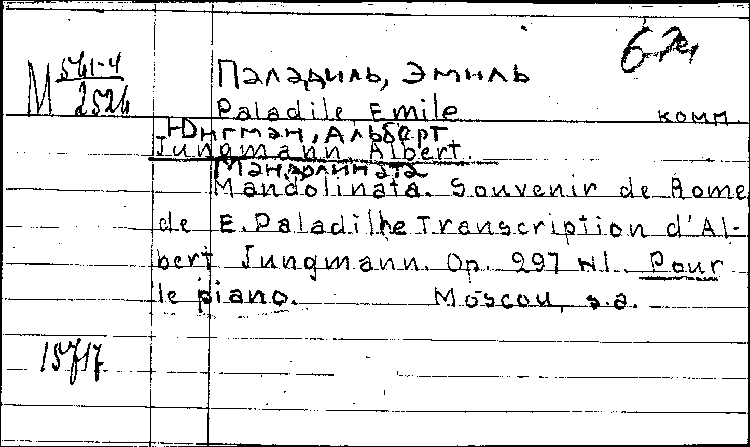 М 561-4/2526
Паладиль, Эмиль
Paladile, Emile
комм.
Юнгман, Альберт
Jungmann, Albert.
Мандолината
Mandolinata. Souvenir de Rome
de E. Paladilhe Transcription d'Al-
bert Jungmann. Op. 297 N1. Pour
le piano. Moscou, s.a.
15717